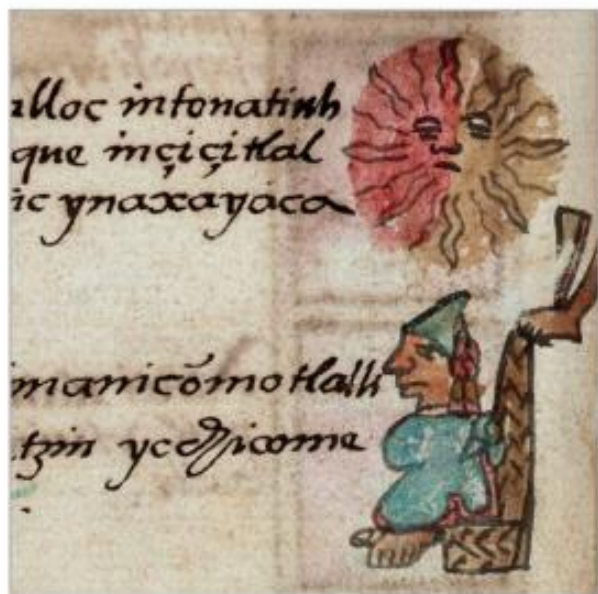 alloc intonatiuh
que inçiçitlal
ic ynaxayaca
manicõmotlalli
tzin yc